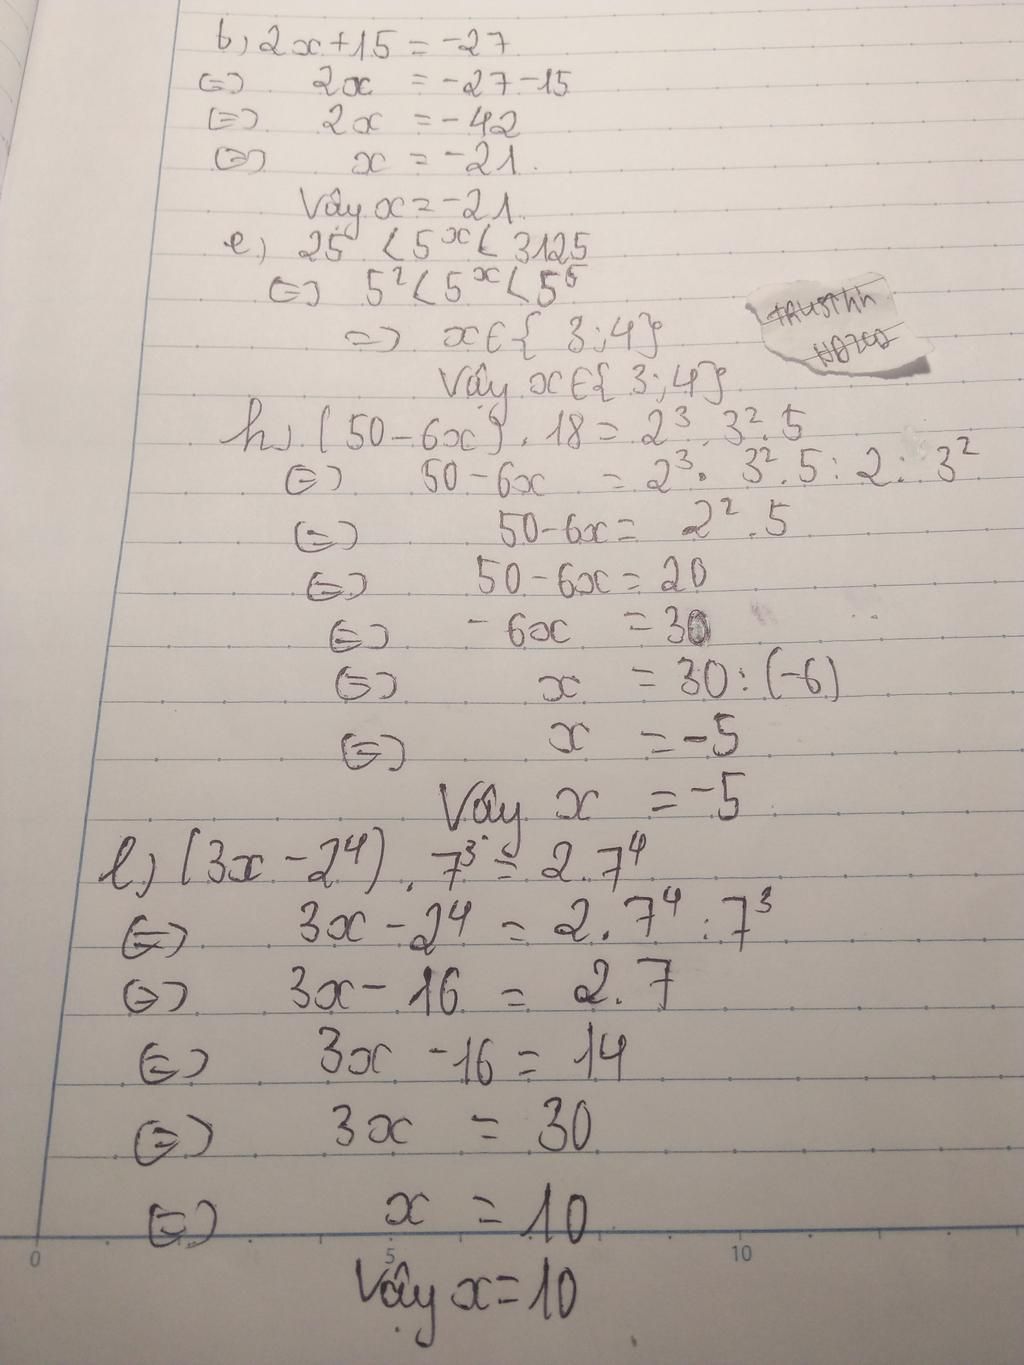 b, 2x+15 = -27
⇔ 2x = -27-15
⇔ 2x = -42
⇔ x = -21.
Vây x = -21.
e, 25 < 5^x < 3125
⇔ 5² < 5^x < 5⁵
=> x∈{ 3;4}
Vây x∈{ 3;4}
h, (50-6x). 18 = 2³. 3². 5
⇔ 50-6x = 2³. 3². 5 : 2 : 3²
⇔ 50-6x = 2². 5
⇔ 50-6x = 20
⇔ -6x = 30
⇔ x = 30 : (-6)
⇔ x = -5
Vây x = -5
l, (3x-2⁴). 7³ = 2. 7⁴
⇔ 3x-2⁴ = 2. 7⁴ : 7³
⇔ 3x-16 = 2. 7
⇔ 3x-16 = 14
⇔ 3x = 30
⇔ x = 10
0 5 10
Vây x = 10